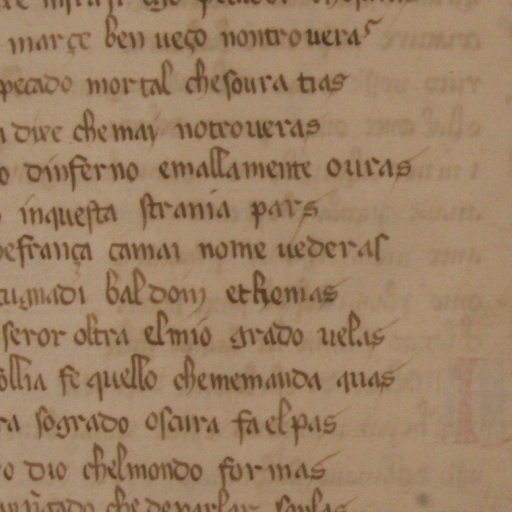 març̣e ben ueço nontroueras
pecado mortal chesoura tras
dixe chemay notroueras
o dinferno emallamente ouras
inquesta strania pars
efrança camai nome uederas
cugnadi baldoin ethomas
seror oltra elmio grado uelas
ollia fe quello chememanda quas
ra sogrado oscura faelpas
o dio chelmondo formas